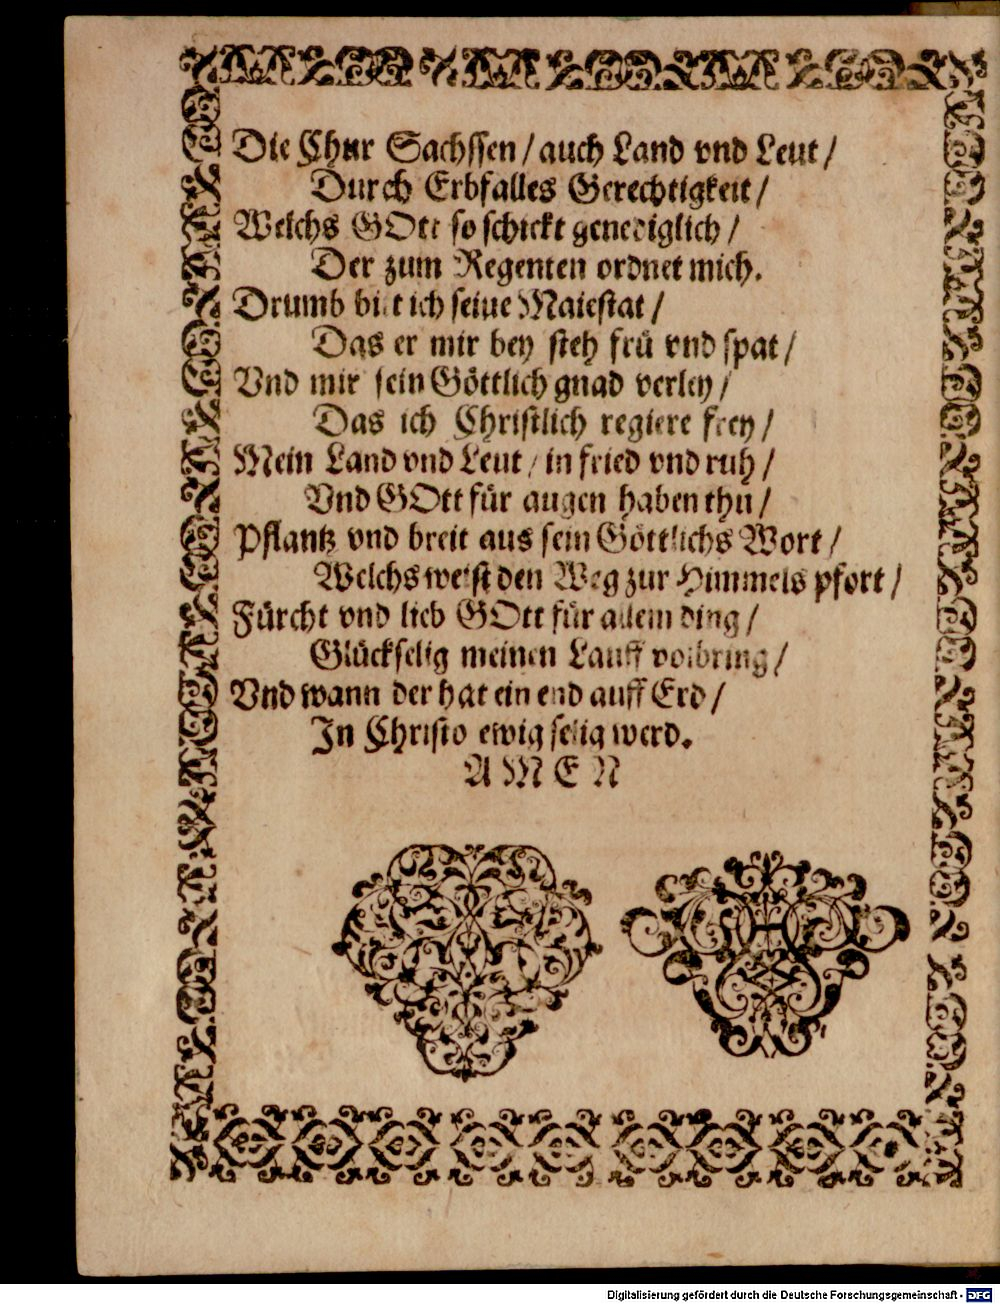 Die Chur Sachssen / auch Land vnd Leut /
Durch Erbfalles Gerechtigkeit /
Welchs GOtt so schickt genediglich /
Der zum Regenten ordnet mich.
Drumb bitt ich seine Maiestat /
Das er mir bey steh frü vnd spat /
Vnd mir sein Göttlich gnad verley /
Das ich Christlich regiere frey /
Mein Land vnd Leut / in fried vnd ruh /
Vnd GOtt für augen haben thu /
Pflantz vnd breit aus sein Göttlichs Wort /
Welchs weist den Weg zur Himmels pfort /
Fürcht vnd lieb GOtt für allem ding /
Glückselig meinen Lauff volbring /
Vnd wann der hat ein end auff Erd /
In Christo ewig selig werd.
A M E N
Digitalisierung gefördert durch die Deutsche Forschungsgemeinschaft - DFG